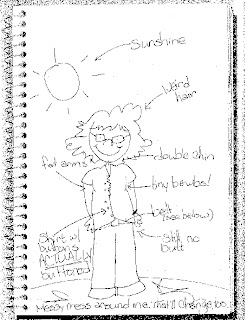 Sunshine
Weird
hair
fat arms
double chin
tiny boobs!
belt
(see below)
Shirt w/
buttons
ACTUALLY
buttoned
Still no
butt
Messy mess around me. that'll change too.